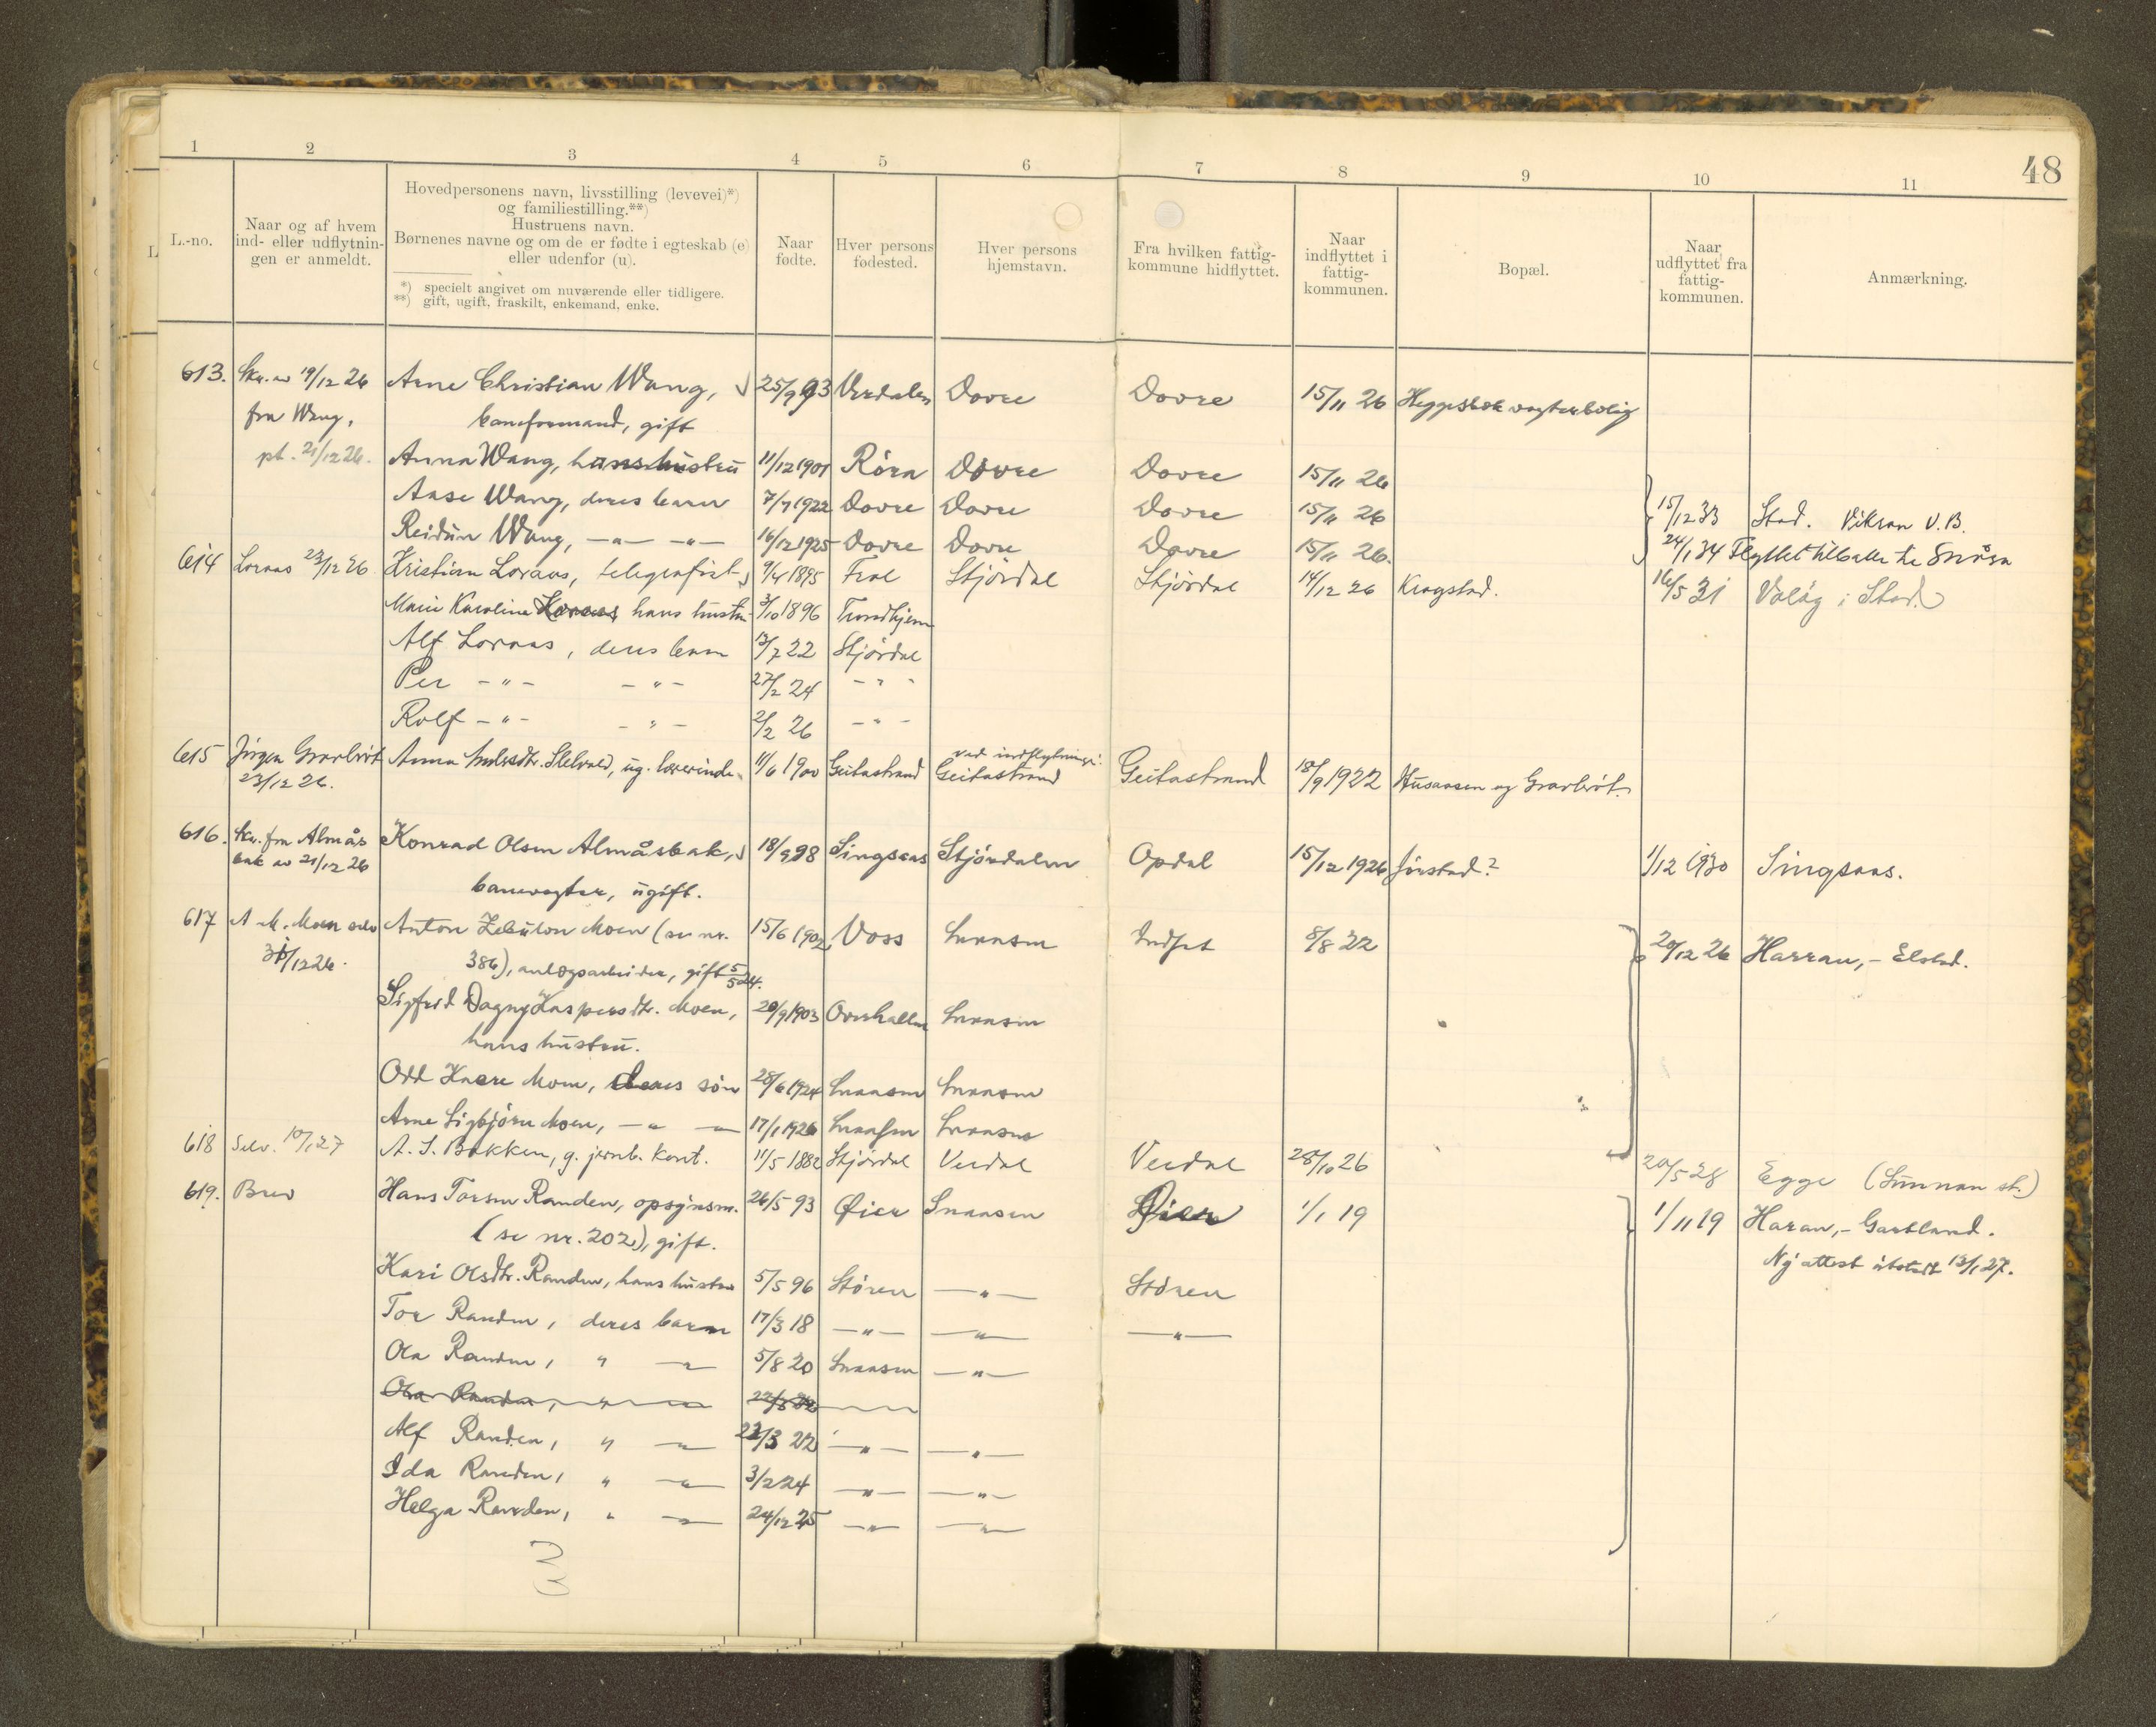 48
1 2 3 4 5 6 7 8 9 10 11
L.-no.
Naar og af hvem
ind- eller udflytnin-
gen er anmeldt.
Hovedpersonens navn, livsstilling (levevei)*)
og familiestilling.**)
Hustruens navn.
Børnenes navne og om de er fødte i egteskab (e)
eller udenfor (u).
*) specielt angivet om nuværende eller tidligere.
**) gift, ugift, fraskilt, enkemand, enke.
Naar
fødte.
Hver persons
fødested.
Hver persons
hjemstavn.
Fra hvilken fattig-
kommune hidflyttet.
Naar
indflyttet i
fattig-
kommunen.
Bopæl.
Naar
udflyttet fra
fattig-
kommunen.
Anmærkning.
613. Skr. av 19/12 26 Arne Christian Wang, 25/9 93 Verdalen Dovre Dovre 15/11 26 Heggesbak vogterbolig
fra Wang, baneformand, gift
pt. 21/12 26. Anna Wang, hans hustru 11/12 1901 Röra Dovre Dovre 15/11 26
Aase Wang, deres barn 7/7 1922 Dovre Dovre Dovre 15/11 26 15/12 33 Stod. Vikran V.B.
Reidun Wang, -"- -"- 16/12 1925 Dovre Dovre Dovre 15/11 26. 24/1 34 Flyttet tilbake te Snåsa
614 Loraas 23/12 26 Kristian Loraas, telegrafist 9/4 1895 Frol Stjördal Stjördal 14/12 26 Kragstad. 16/5 31 Valöy i Stod.
Marie Karoline Loraas, hans hustru 3/10 1896 Trondhjem
Alf Loraas, deres barn 13/7 22 Stjördal
Per -"- -"- 27/2 24 -"-
Rolf -"- -"- 2/2 26 -"-
615 Jörgen Gravbröt Anna Andersdtr. Slelvold, ug. lærerinde 11/6 1900 Geitastrand ved indflytninge: Geitastrand Geitastrand 18/9 1922 Husaasen og Gravbröt.
23/12 26.
616. Skr. fra Almås Konrad Olsen Almåsbak, 18/9 98 Singsaas Stjördalen Opdal 15/12 1926 Jörstad? 1/12 1930 Singsaas.
bak av 21/12 26
banevogter, ugift.
617 A. M. Moen selv Anton Zebulon Moen (se nr. 15/6 1902 Voss Snaasen Indset 8/8 22 20/12 26 Harran, - Elstad.
31/12 26. 386), anlægsarbeider, gift 5/5 24.
Sigfrid Dagny Kaspersdtr. Moen, 20/9 1903 Overhallen Snaasen
hans hustru.
Odd Kaare Moen, deres sön 28/6 1924 Snaasen Snaasen
Arne Sigbjörn Moen, -"- 17/1 1926 Snaasen Snaasen
618 Selv. 10/1 27 A. S. Bakken, g. jernb. kont. 11/5 1882 Stjördal Verdal Verdal 28/10 26 20/5 28 Egge (Sunnan st.)
619. Brev Hans Torsen Randen, opsynsm. 26/5 93 Öier Snaasen Öier 1/1 19 1/11 19 Haran, - Gartland.
(se nr. 202), gift. Ny attest utstedt 13/1 27.
Kari Olsdtr. Randen, hans hustru 5/5 96 Stören -"- Stören
Tor Randen, deres barn 17/3 18 -"- -"- -"-
Ola Randen, " -"- 5/8 20 Snaasen -"-
Ola Randen, " -"- 22/3 22
Alf Randen, " -"- 22/3 22 -"- -"-
Ida Randen, " -"- 3/2 24 -"- -"-
Helga Randen, " -"- 24/12 25 -"- -"-